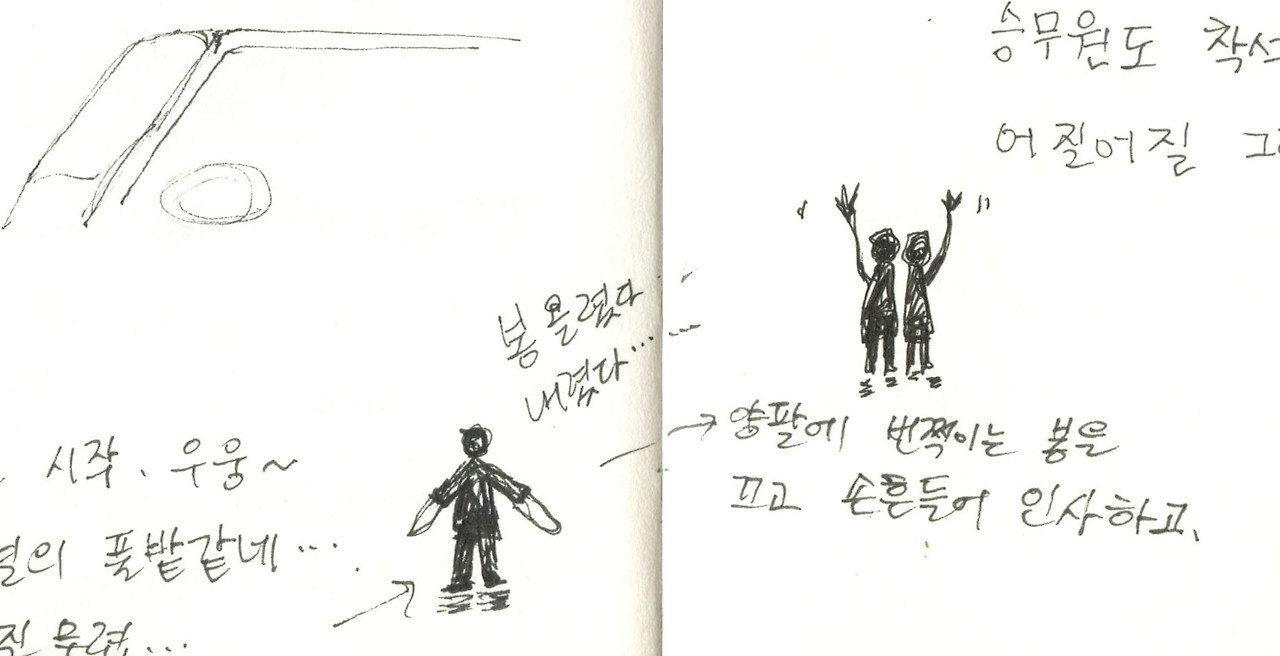 봉 올렸다
내렸다...
시작. 우웅~
풀밭같네...
무렵...
승무원도
어질어질
양팔에 번쩍이는 봉을
끄고 손흔들어 인사하고,